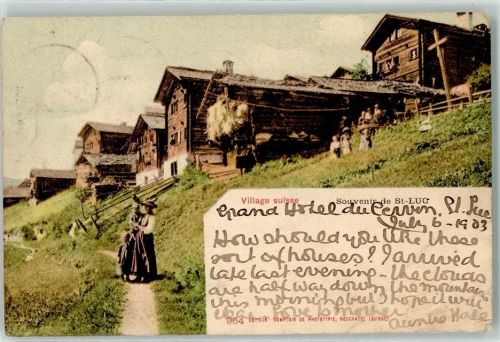 Village suisse Souvenir de St-LUC
Grand Hotel du Cervin, St. Luc
July 6-1903
How should you like these
sort of houses? I arrived
late last evening - the clouds
are half way down the mountains
this morning but I hope it will
clear. Love to mother
Auntie
964 EDITEUR COMPTOIR DE PHOTOTYPIE, NEUCHATEL (SUISSE)